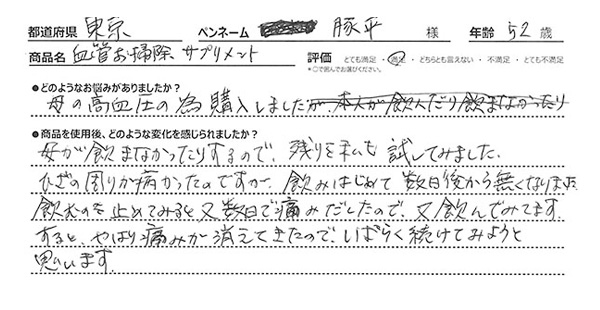 都道府県 東京 ペンネーム 豚平 様 年齢 52 歳
商品名 血管お掃除サプリメント 評価 とても満足 ・ 満足 ・ どちらとも言えない ・ 不満足 ・ とても不満足
※○で囲んでお選びください。
●どのようなお悩みがありましたか?
母の高血圧の為購入しましたが、本人が飲んだり飲まなかったり
●商品を使用後、どのような変化を感じられましたか?
母が飲まなかったりするので、残りを私も試してみました。
ひざの周りが痛かったのですが、飲みはじめて数日後から無くなりました
飲むのを止めてみると又数日で痛みだしたので、又飲んでみてます
すると、やはり痛みが消えてきたので、しばらく続けてみようと
思います。